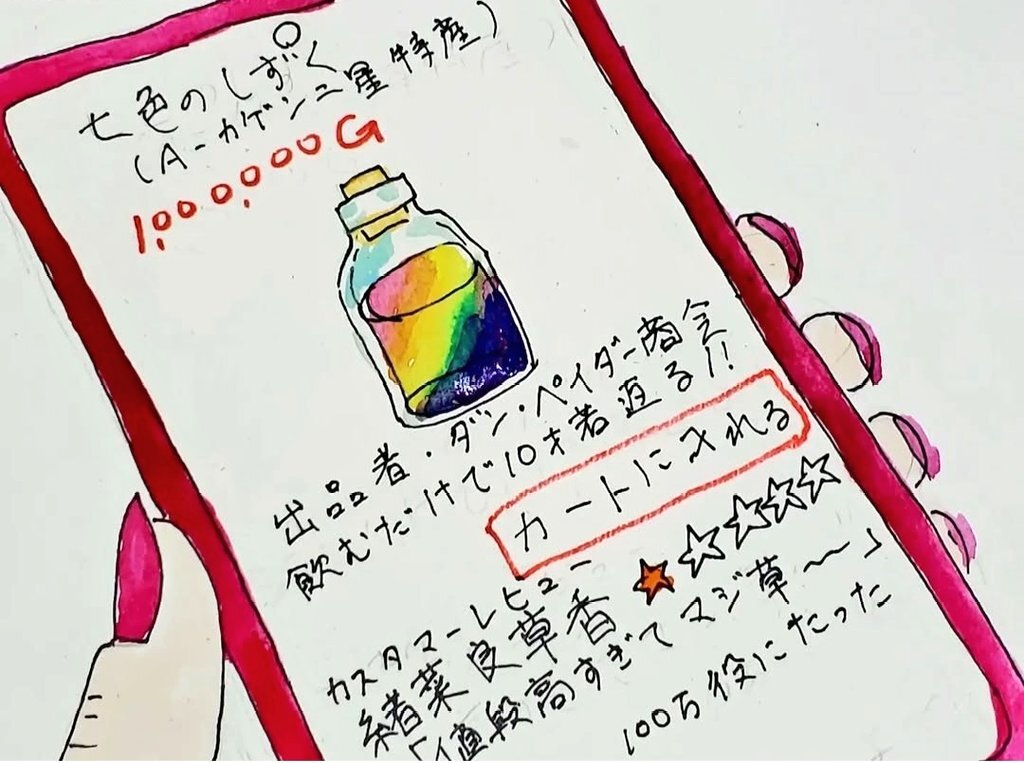 七色のしずく
(A-カゲン二星特産)
1,000,000G
出品者・ダン・ペイダー商会
飲むだけで10才若返る!!
カートに入れる
カスタマーレビュー
緒菜良草香 ★☆☆☆☆
「値段高すぎてマジ草〜」
100万役にたった